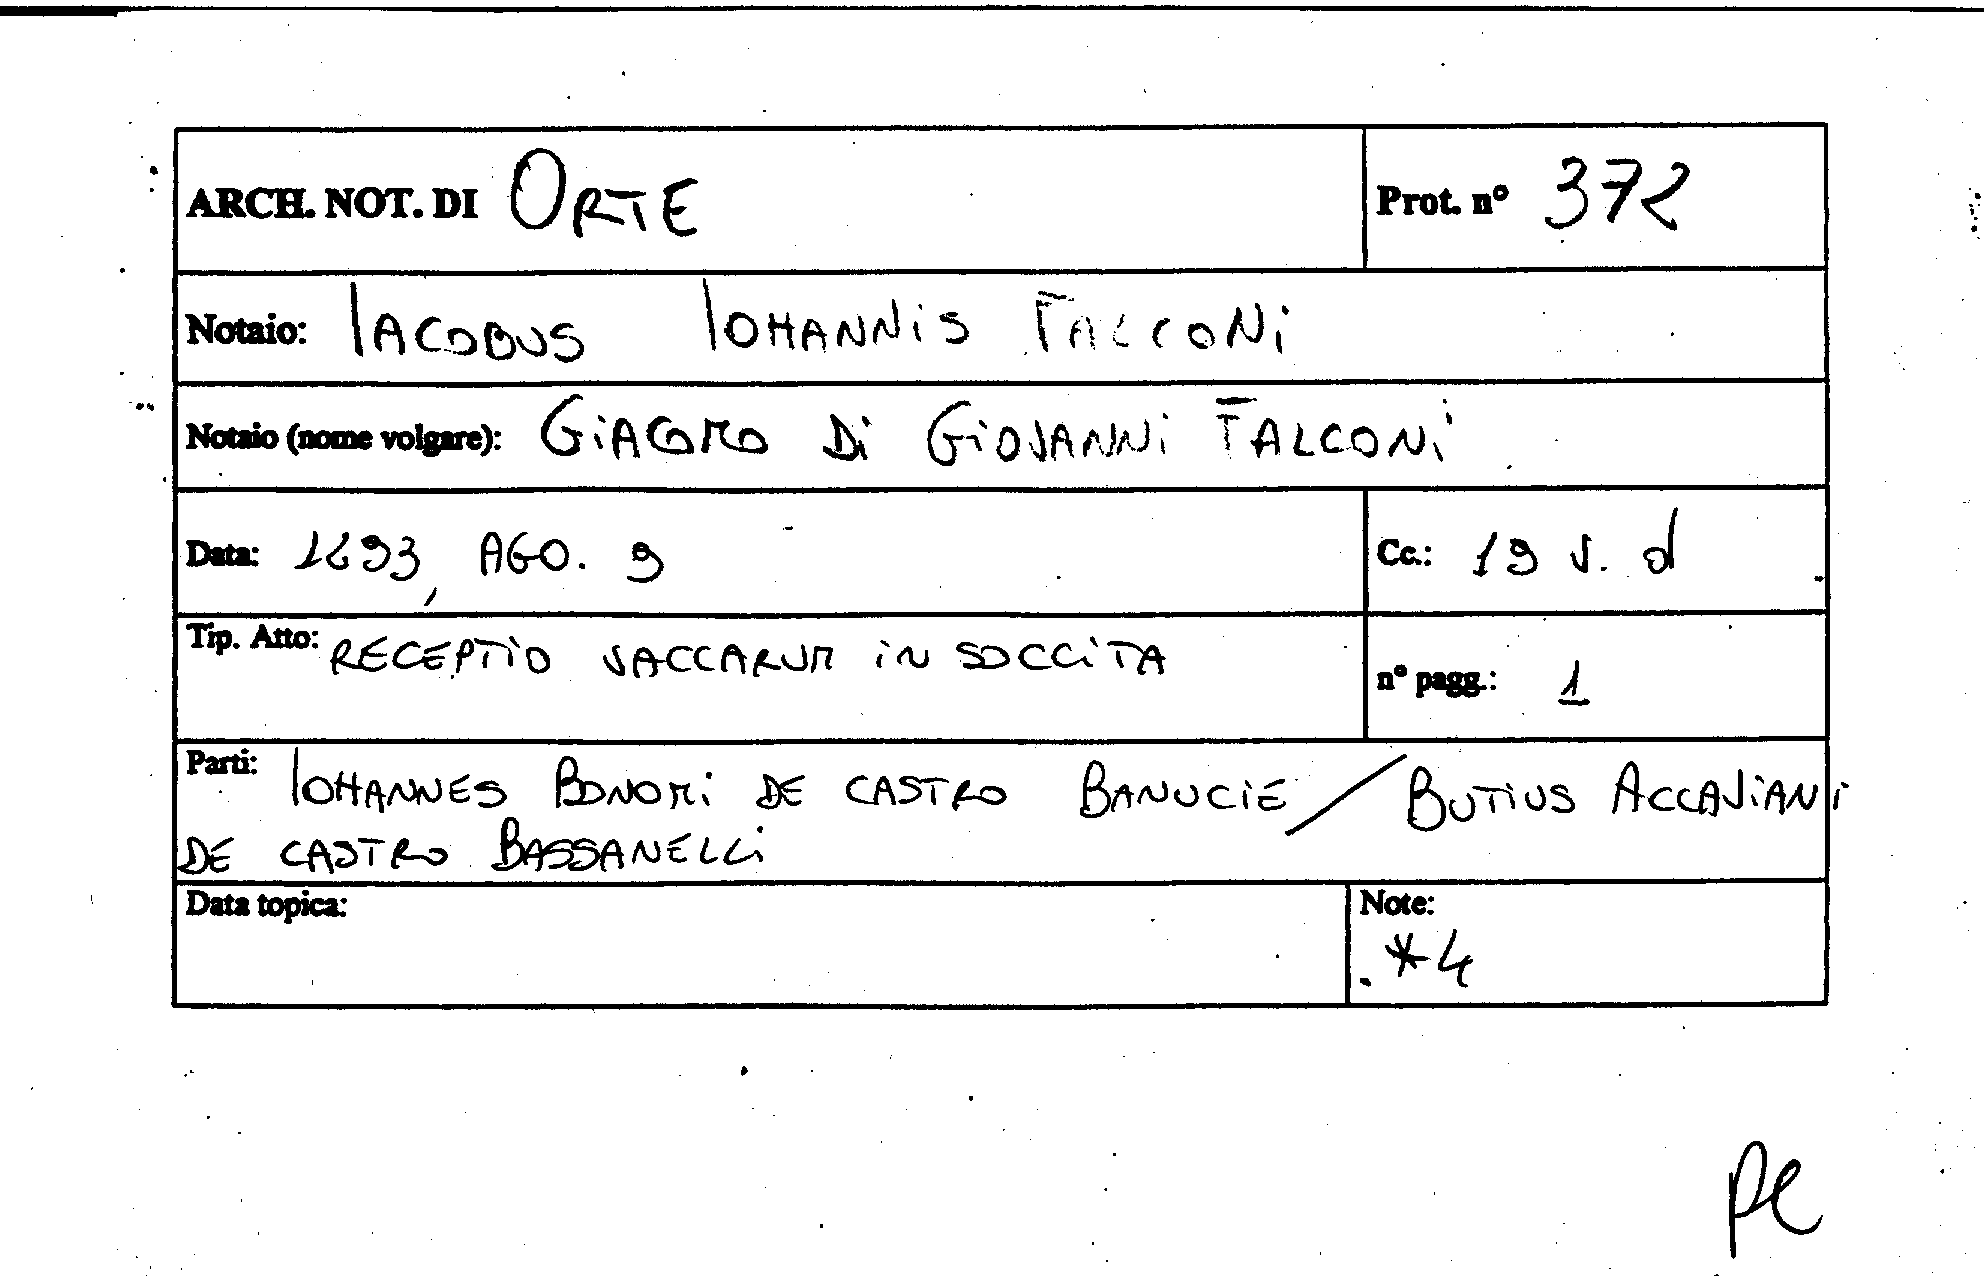 ARCH. NOT. DI ORTE Prot. n° 372
Notaio: IACOBUS IOHANNIS FALCONI
Notaio (nome volgare): GIACOMO DI GIOVANNI FALCONI
Data: 1493, AGO. 9 Cc.: 19 v. d
Tip. Atto: RECEPTIO VACCARUM IN SOCCITA n° pagg.: 1
Parti: IOHANNES BONOMI DE CASTRO BANUCIE / BUTIUS ACCAVIANI
DE CASTRO BASSANELLI
Data topica: Note:
*4
PC